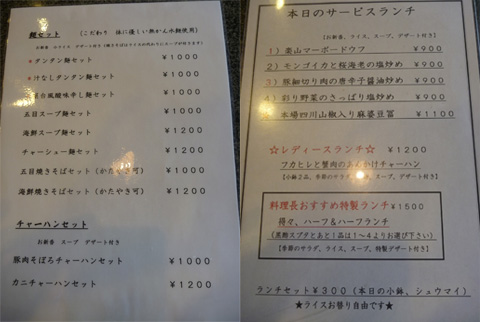 麺セット (こだわり 体に優しい無かん水麺使用)
＊タンタン麺セット ￥1000
＊汁なしタンタン麺セット ￥1000
風酸味辛し麺セット ￥1000
五目スープ麺セット ￥1000
海鮮スープ麺セット ￥1200
チャーシュー麺セット ￥1200
五目焼きそばセット (かたやき可) ￥1000
海鮮焼きそばセット (かたやき可) ￥1200
チャーハンセット
お新香 スープ デザート付き
豚肉そぼろチャーハンセット ￥1000
カニチャーハンセット ￥1200
本日のサービスランチ
【お新香、ライス、スープ、デザート付き】
1）葉山マーボードウフ ￥900
2）モンゴイカと桜海老の塩炒め ￥900
3）豚細切り肉の唐辛子醤油炒め ￥900
4）彩り野菜のさっぱり塩炒め ￥900
本場四川山椒入り麻婆豆腐 ￥1100
☆レディースランチ☆ ￥1200
フカヒレと蟹肉のあんかけチャーハン
【小鉢2品、季節のサラダ、スープ、デザート付き】
料理長おすすめ特製ランチ ￥1500
得々、ハーフ＆ハーフランチ
(黒酢スブタとあと1品は1～4よりお選び下さい)
【季節のサラダ、ライス、スープ、特製デザート付き】
ランチセット￥300 (本日の小鉢、シュウマイ)
★ライスお替り自由です★